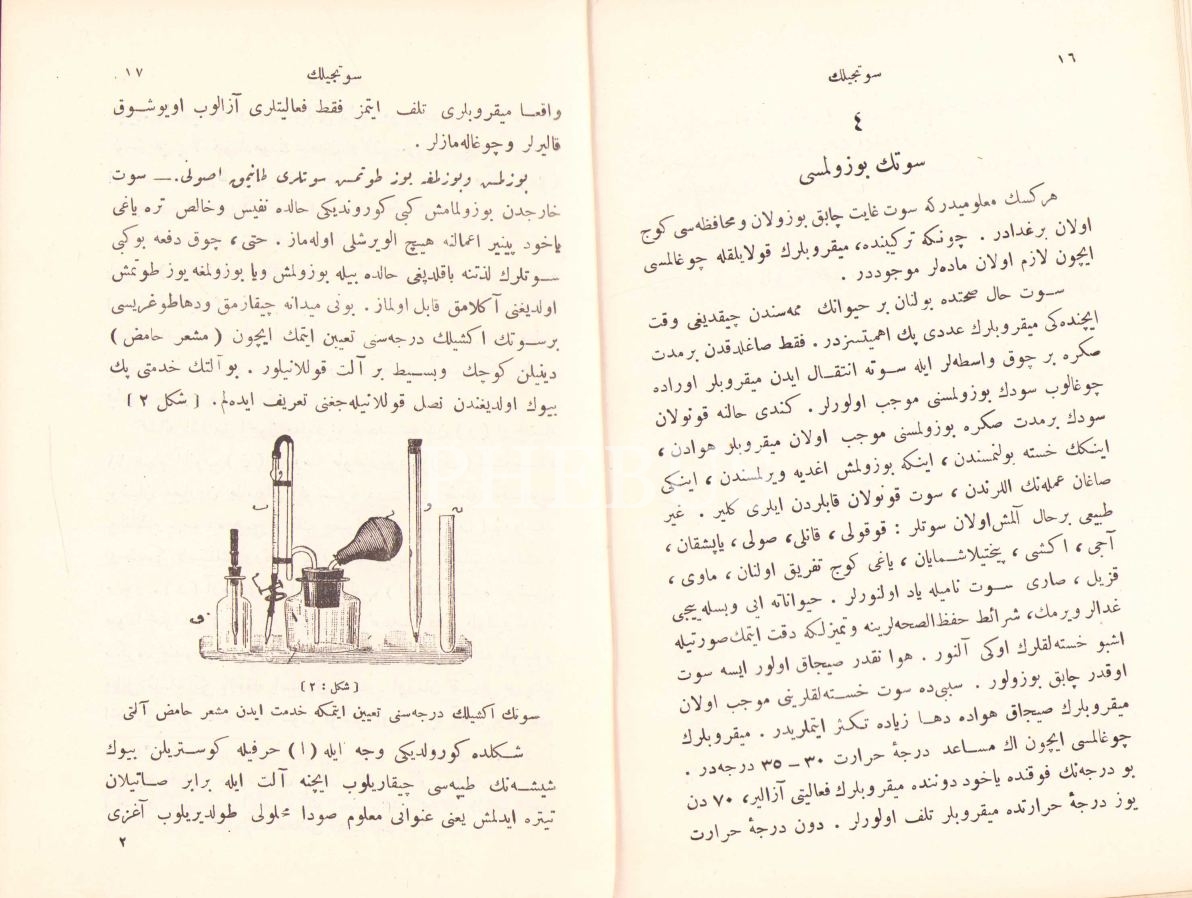 ١٦
سوتجیلك
٤
سوتك بوزولمسی
هركسك معلومیدركه سوت غایت چابق بوزولان ومحافظه‌سی كوج
اولان برغدادر . چونكه تركیبنده، میقروبلرك قولایلقله چوغالمسی
ایچون لازم اولان ماده‌لر موجوددر .
سـوت حال صحتده بولنان بر حیوانك ممه‌سندن چیقدیغی وقت
ایچنده‌كی میقروبلرك عددی پك اهمیتسزدر . فقط صاغلدقدن برمدت
صكره بر چوق واسطه‌لر ایله سـوته انتقـال ایدن میقروبلر اوراده
چوغالوب سودك بوزولمسنی موجب اولورلر . كندی حالنه قونولان
سودك برمدت صكره بوزولمسنی موجب اولان میقروبلر هوادن ،
اینكك خسته بولنمسندن ، اینكه بوزولمش اغدیه ویرلمسندن ، اینكی
صاغان عمله‌نك اللرندن ، سوت قونولان قابلردن ایلری كلیر . غیر
طبیعی برحال آلمش‌اولان سوتلر : قوقولی ، قانلی، صولی ، یاپشقان ،
آجی ، اكشی ، پختیلاشـمایان ، یاغی كوج تفریق اولنان ، ماوی ،
قزیل ، صاری سـوت نامیله یاد اولنورلر . حیواناته ایی وبسله‌ییجی
غدالر ویرمك، شرائط حفظ‌الصحه‌لرینه وتمیزلكه دقت ایتمك‌صورتیله
اشبو خسته‌لقلرك اوكی آلنور . هوا نقدر صیجاق اولور ایسه سوت
اوقدر چابق بوزولور . سببی‌ده سوت خسـته‌لقلرینی موجب اولان
میقروبلرك صیجاق هواده دهـا زیاده تـكثر ایتملریدر . میقروبلرك
چوغالمسی ایچون اك مسـاعد درجهٔ حرارت ۳۰ – ۳۵ درجه‌در .
بو درجه‌نك فوقنده یاخود دوننده میقروبلرك فعالیتی آزالیر، ۷۰ دن
یوز درجهٔ حرارتده میقروبلر تلف اولورلر . دون درجهٔ حرارت
سوتجیلك
١٧
واقعـا میقروبلری تلف ایتمز فقط فعالیتلری آزالوب اویوشـوق
قالیرلر وچوغاله‌مازلر .
بوزلمش وبوزلمغه یوز طوتمش سوتلری طانیمق اصولی. — سوت
خارجدن بوزولمامش كبی كوروندیكی حالده نفیس وخالص تره یاغی
یاخود پینیر اعمالنه هیچ الویرشلی اوله‌ماز . حتی ، چوق دفعه بوكبی
سـوتلرك لذتنه باقلدیغی حالده بیله بوزولمش ویا بوزولمغه یوز طوتمش
اولدیغنی آكلامق قابل اولماز . بونی میدانه چیقارمق ودهاطوغریسی
برسوتك اكشیلك درجه‌سنی تعیین ایتمك ایچون ( مشعر حامض )
دینیلن كوچك وبسـیط بر آلت قوللانیلور . بوآلتك خدمتی پك
بیوك اولدیغندن نصل قوللانیله‌جغنی تعریف ایده‌لم. [ شكل ۲ ]
و
ب
ا
[ شكل : ۲ ]
سوتك اكشیلك درجه‌سنی تعیین ایتمكه خدمت ایدن مشعر حامض آلتی
شـكلده كورولدیكی وجه ایله (ا) حرفیله كوسـتریلن بیوك
شیشـه‌نك طیپه‌سی چیقاریلوب ایچنه آلت ایله برابر صـاتیلان
تیتره ایدلمش یعنی عنوانی معلوم صودا محلولی طولدیریلوب آغزی
٢